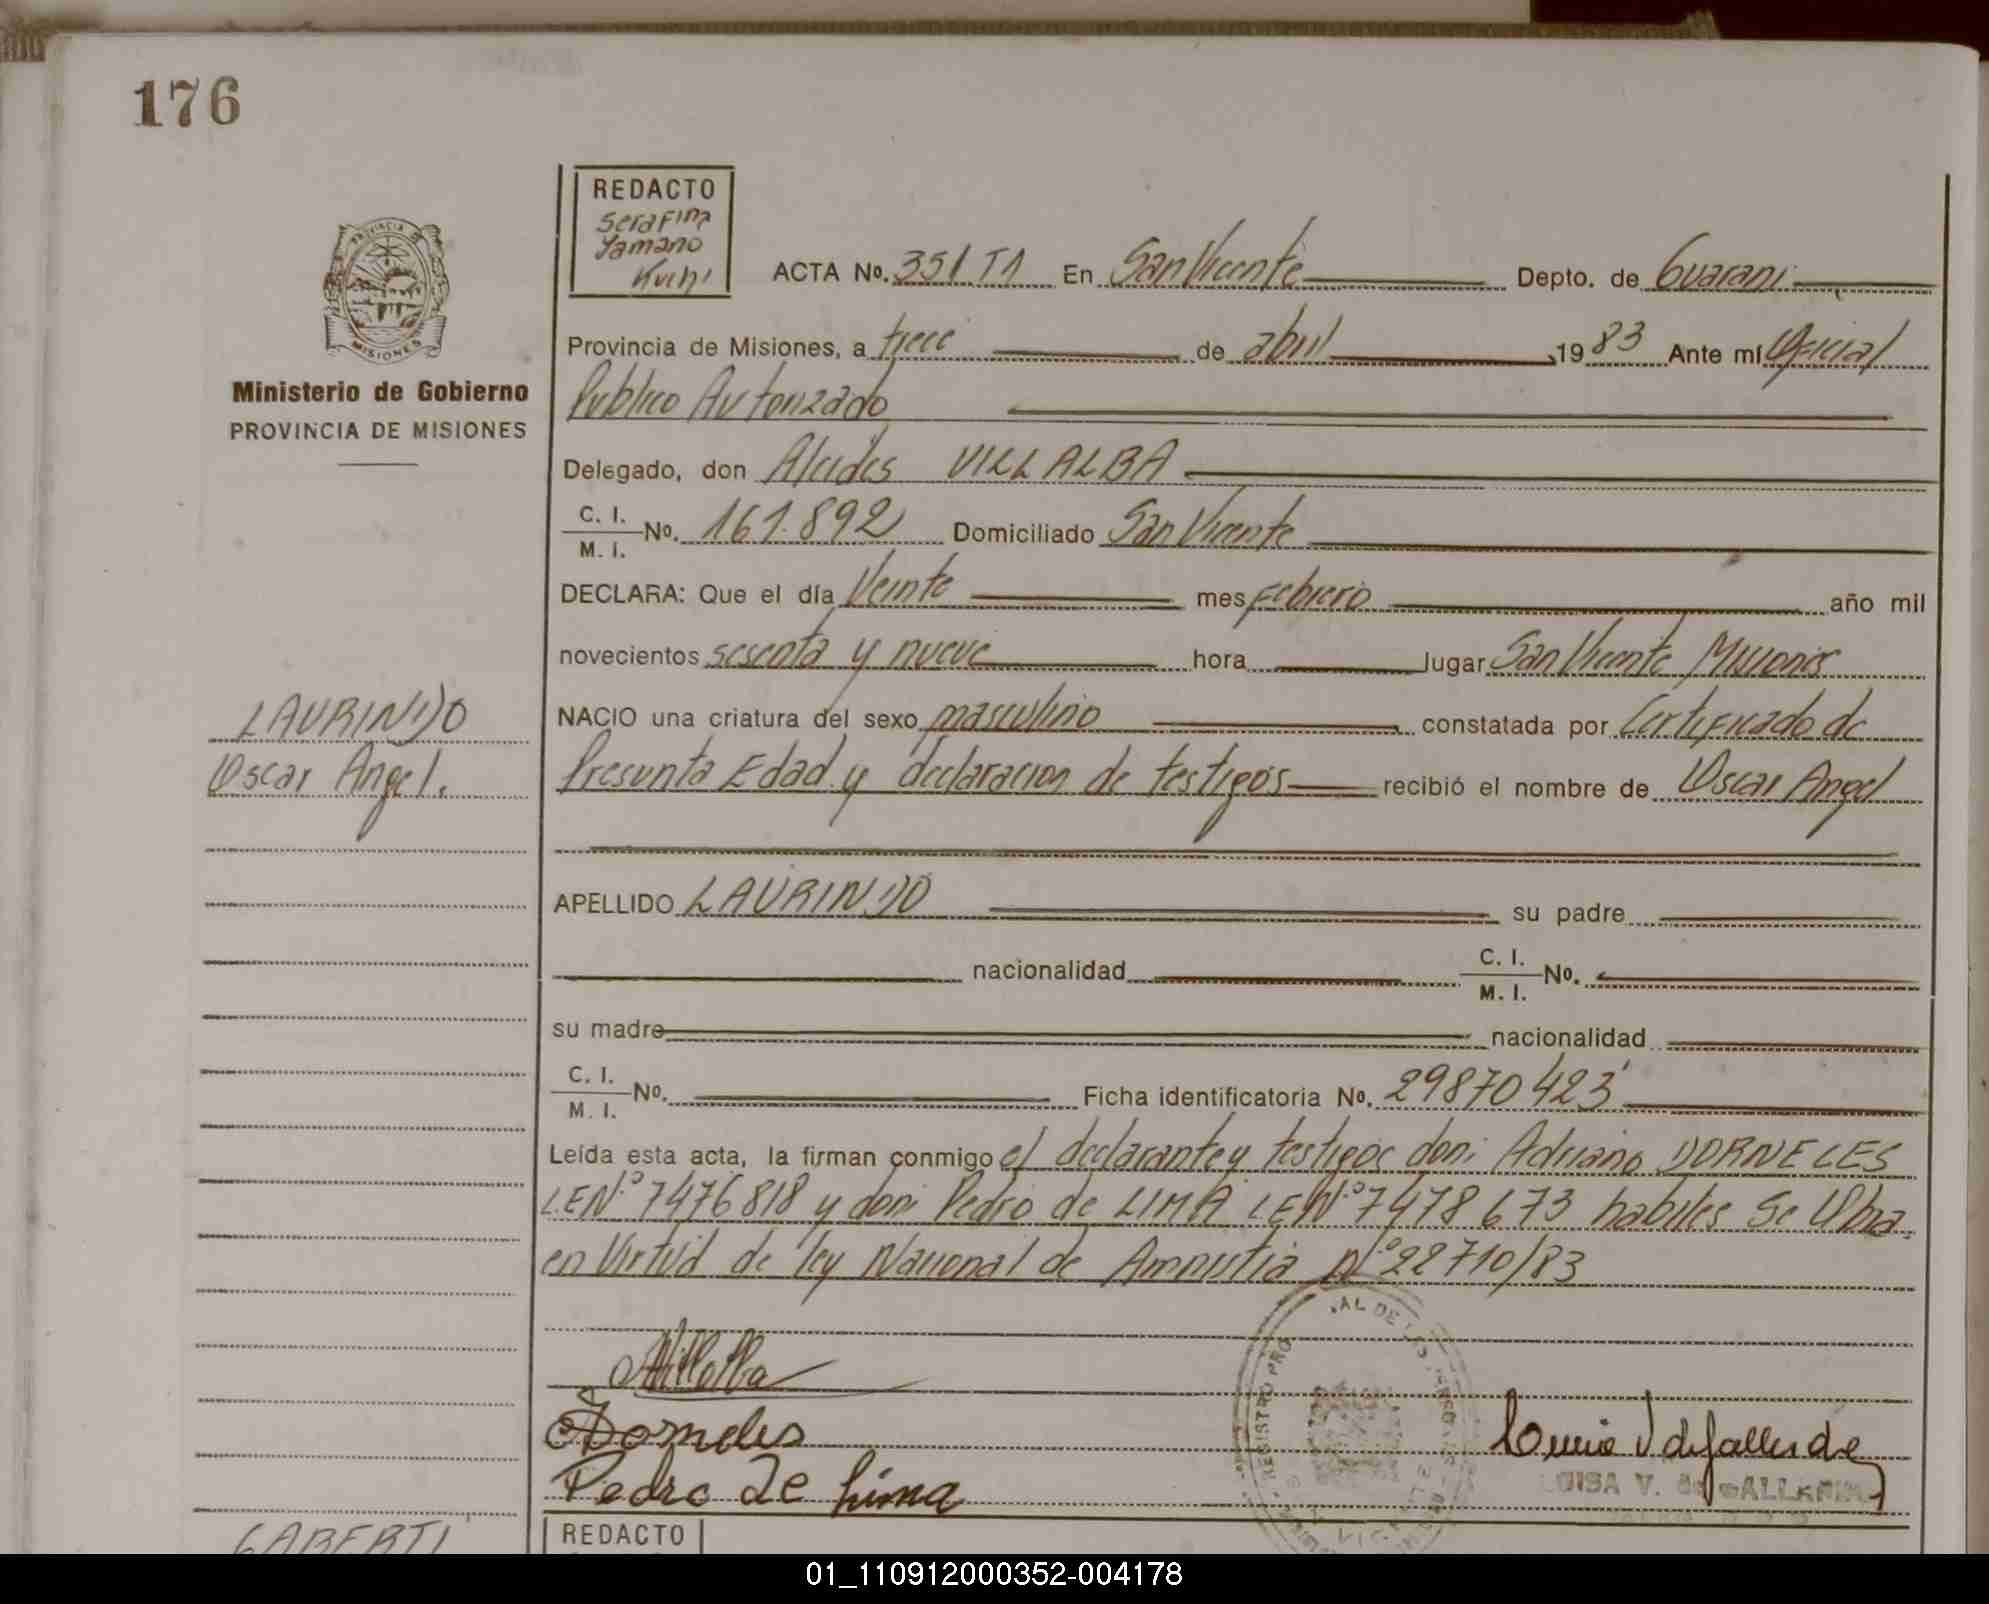 176
REDACTO
Serafina
Yamano
Kuchi
ACTA No. 351 T1 En San Vicente Depto. de Guarani
Provincia de Misiones, a trece de abril 1983 Ante mí Oficial
Publico Autorizado
PROVINCIA DE
MISIONES
Ministerio de Gobierno
PROVINCIA DE MISIONES
Delegado, don Alcides VILLALBA
C. I.
M. I. No. 161.892 Domiciliado San Vicente
DECLARA: Que el día Veinte mes Febrero año mil
novecientos sesenta y nueve hora lugar San Vicente Misiones
LAURINDO
Oscar Angel.
NACIO una criatura del sexo masculino constatada por Certificado de
Presunta Edad y declaracion de testigos recibió el nombre de Oscar Angel
APELLIDO LAURINDO su padre
nacionalidad C. I.
M. I. No.
su madre nacionalidad
C. I.
M. I. No. Ficha identificatoria No. 29870423
Leída esta acta, la firman conmigo el declarante y testigos don: Adriano DORNELES
L.E.Nº 7476818 y don: Pedro de LIMA LE Nº 7478673 habiles Se Obra
en Virtud de ley Nacional de Amnistia Nº 22710/83
Villalba
Dorneles
Pedro de Lima
REGISTRO PRO
AL DE LAS PERSONAS
LUISA V. de GALLARDO
GABERTI
REDACTO
01_110912000352-004178